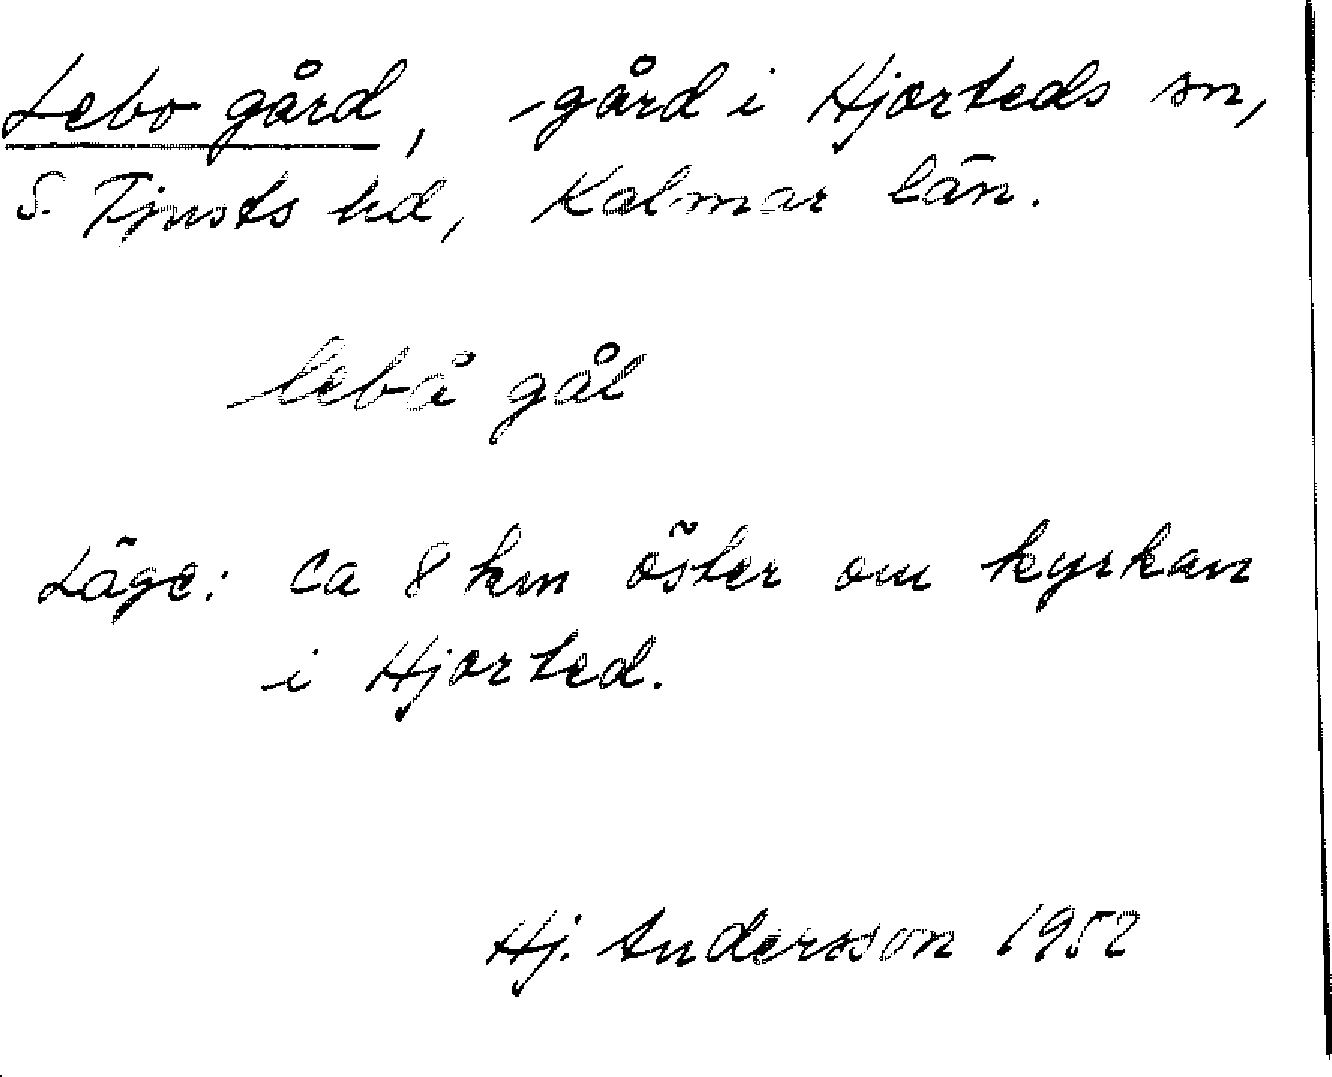 Lebo gård, gård i Hjorteds sn,
S. Tjusts hd, Kalmar län.
lebå gål
Läge: ca 8 km öster om kyrkan
i Hjorted.
Hj. Andersson 1952